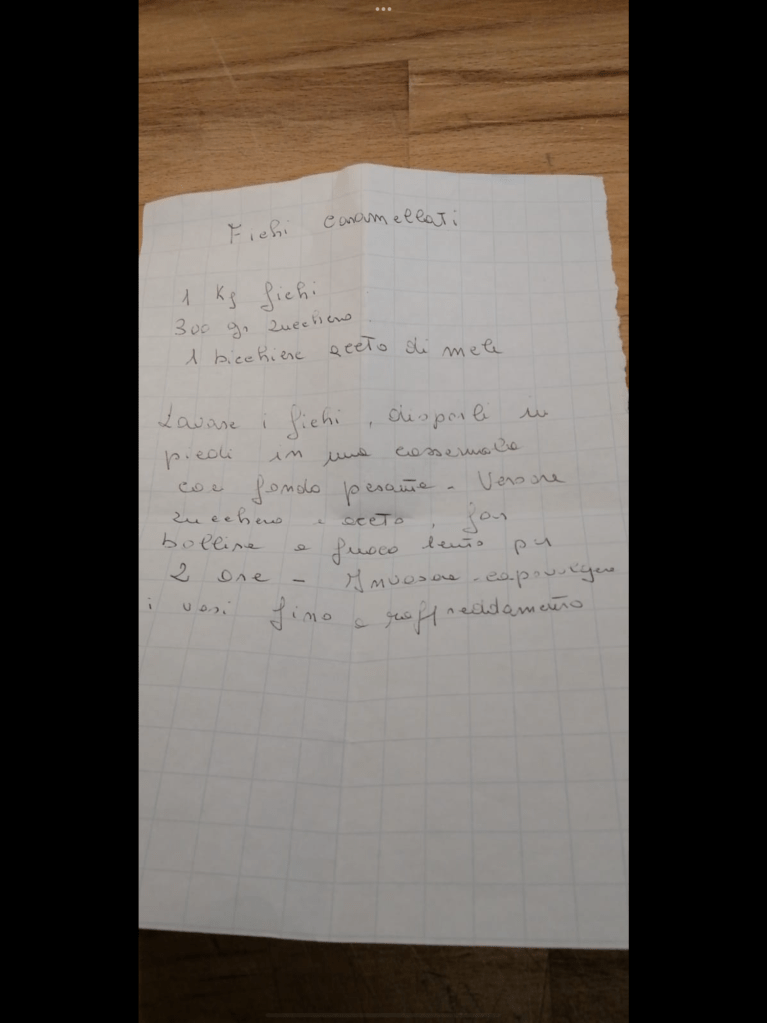 Fichi caramellati
1 Kg fichi
300 gr zucchero
1 bicchiere aceto di mele
Lavare i fichi, disporli in
piedi in una casseruola
col fondo pesante - Versare
zucchero e aceto, far
bollire a fuoco lento per
2 ore - Invasare - capovolgere
i vasi fino a raffreddamento